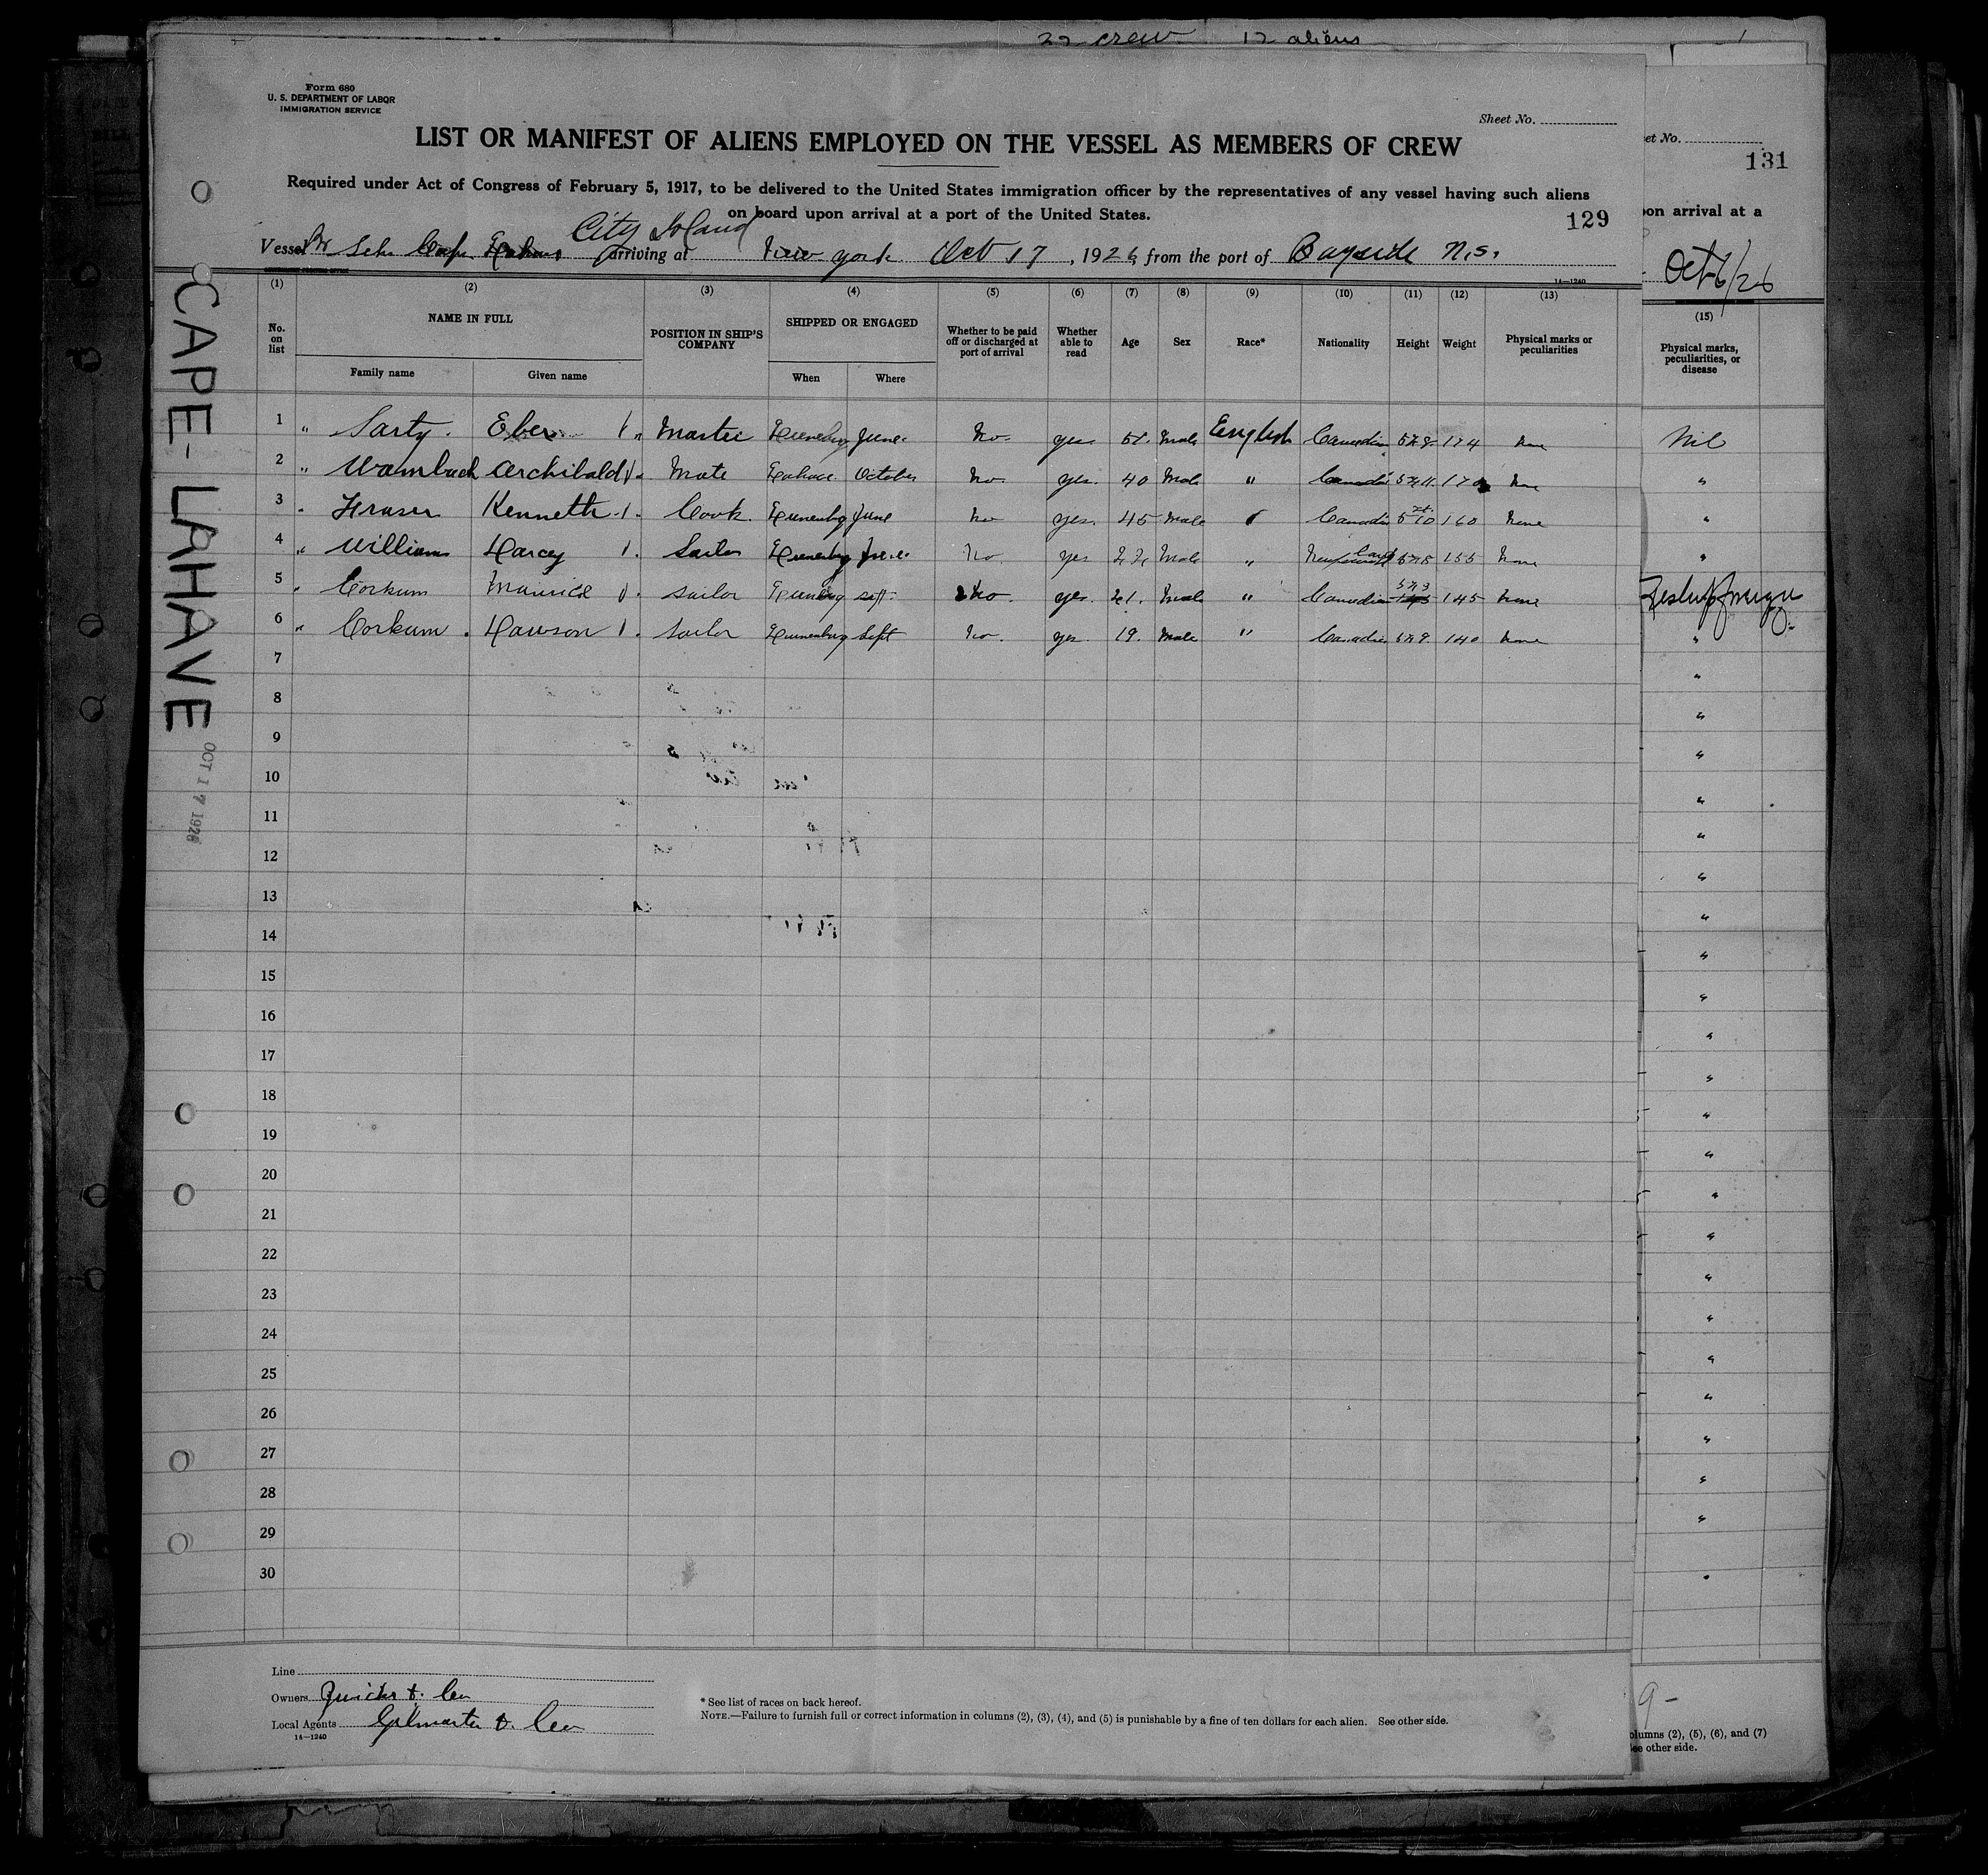 22 crew 12 aliens
Form 680
U. S. DEPARTMENT OF LABOR
IMMIGRATION SERVICE
Sheet No.
LIST OR MANIFEST OF ALIENS EMPLOYED ON THE VESSEL AS MEMBERS OF CREW
Required under Act of Congress of February 5, 1917, to be delivered to the United States immigration officer by the representatives of any vessel having such aliens
on board upon arrival at a port of the United States.
129
City Island
Vessel Br Sch Cape Lahave arriving at New York Oct 17, 1926, from the port of Bayside N.S.
14—1240
(1) (2) (3) (4) (5) (6) (7) (8) (9) (10) (11) (12) (13)
No. on list
NAME IN FULL
Family name
Given name
POSITION IN SHIP'S COMPANY
SHIPPED OR ENGAGED
When
Where
Whether to be paid off or discharged at port of arrival
Whether able to read
Age
Sex
Race*
Nationality
Height
Weight
Physical marks or peculiarities
1 " Sarty. Eber Master Lunenburg June No yes 51 Male English Canadian 5ft 8 174 None
2 " Wambach Archibald Mate Lahave October No yes 40 Male " Canadian 5ft 11 170 None
3 " Fraser Kenneth Cook Lunenburg June No yes 45 Male " Canadian 5ft 10 160 None
4 " Williams Harcey Sailor Lunenburg June No yes 22 Male " Newfoundland 5ft 8 155 None
5 " Corkum Maurice Sailor Lunenburg Sept No yes 21 Male " Canadian 5ft 9 145 None
6 " Corkum Dawson Sailor Lunenburg Sept No yes 19 Male " Canadian 5ft 9 140 None
7
8
9
10
11
12
13
14
15
16
17
18
19
20
21
22
23
24
25
26
27
28
29
30
CAPE-LAHAVE
OCT 17 1926
Line
Owners
Local Agents
14—1240
* See list of races on back hereof.
NOTE.—Failure to furnish full or correct information in columns (2), (3), (4), and (5) is punishable by a fine of ten dollars for each alien. See other side.
et No.
131
on arrival at a
Oct 6/26
(15)
Physical marks, peculiarities, or disease
Nil
9-
olumns (2), (5), (6), and (7)
ee other side.